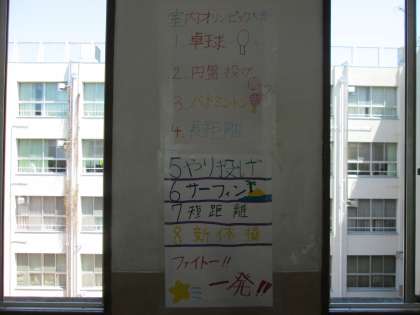 室内オリンピック
1. 卓球
2. 円盤投げ
3. バドミントン
4. 長距離
5 やり投げ
6 サーフィン
7 短距離
8 新体操
ファイトー!!
一発!!